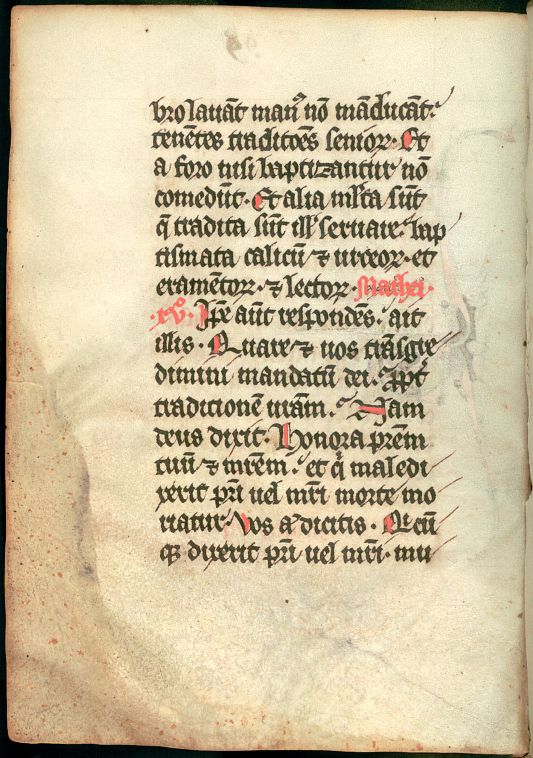 bro lauāt man⁹ nō māducāt.
tenētes traditōes senioꝝ. Et
a foro nisi baptizantur nō
comedūt. Et alia mlta sūt
q̄ tradita sūt ill' seruare. bap
tismata calicū ⁊ urceoꝝ. et
eramētoꝝ. ⁊ lectoꝝ. Mathei.
.xv⁰. Ip̄e aūt respondēs. ait
illis. Quare ⁊ uos trāsgre
dimini mandatū dei. ꝓpt̄
tradicionem uram̄. Nam
deus dixit. Honora prēm
tuū ⁊ mrēm. et q̄ maledi
xerit pr̄i uel mr̄i morte mo
riatur. Vos a͛ dicitis. Qicū
qꝫ dixerit pr̄i uel mr̄i. mu